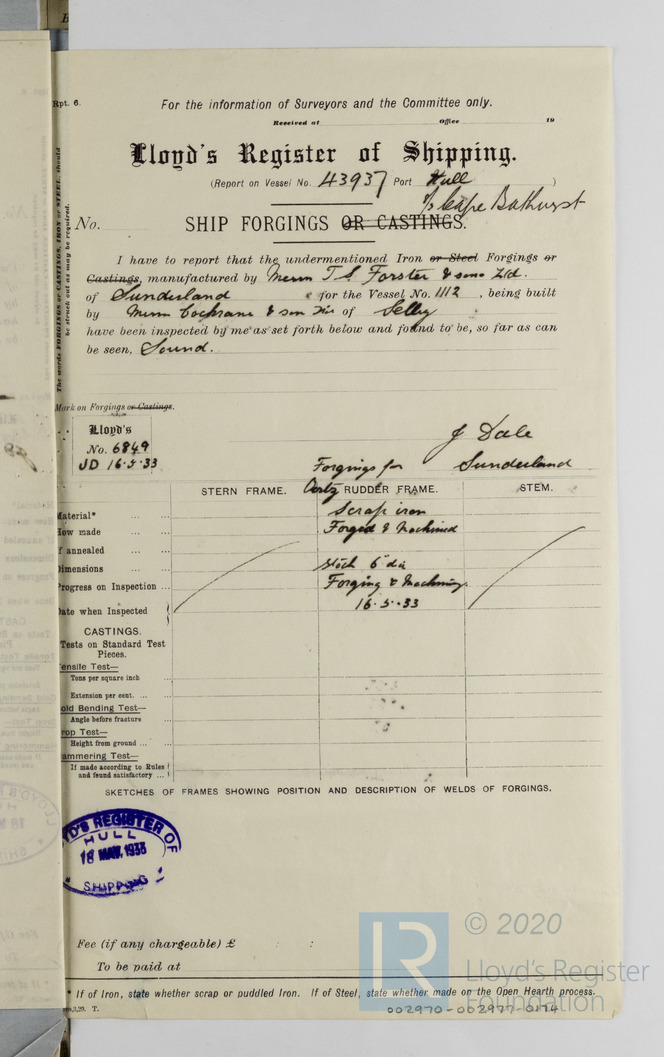 Rpt. 6.
For the information of Surveyors and the Committee only.
Received at Office 19
Lloyd's Register of Shipping.
(Report on Vessel No. 43937 Port Hull )
S/S Cape Bathurst
No. SHIP FORGINGS OR CASTINGS.
The words FORGINGS or CASTINGS, IRON or STEEL, should
be struck out as may be required.
I have to report that the undermentioned Iron or Steel Forgings or
Castings, manufactured by Messrs T. S. Forster & sons Ltd.
of Sunderland for the Vessel No. 1112 , being built
by Messrs Cochrane & son of Selby
have been inspected by me as set forth below and found to be, so far as can
be seen, Sound.
Mark on Forgings or Castings.
Lloyd's
No. 6849
JD 16.5.33
J Dale
Forgings for Sunderland
STERN FRAME. Oertz RUDDER FRAME. STEM.
Material* ... ... Scrap iron
How made ... ... Forged & Machined
If annealed ... ...
Dimensions ... ... Stock 6" dia
Progress on Inspection ... Forging & Machining
Date when Inspected 16.5.33
CASTINGS.
Tests on Standard Test
Pieces.
Tensile Test—
Tons per square inch ...
Extension per cent. ... ...
Cold Bending Test—
Angle before fracture ...
Drop Test—
Height from ground ... ...
Hammering Test—
If made according to Rules
and found satisfactory ...
SKETCHES OF FRAMES SHOWING POSITION AND DESCRIPTION OF WELDS OF FORGINGS.
LLOYD'S REGISTER OF
HULL
18 MAY. 1933
SHIPPING
Fee (if any chargeable) £ : :
To be paid at
* If of Iron, state whether scrap or puddled Iron. If of Steel, state whether made on the Open Hearth process.
T.
© 2020
Lloyd's Register
Foundation
LR
002970-002977-0174